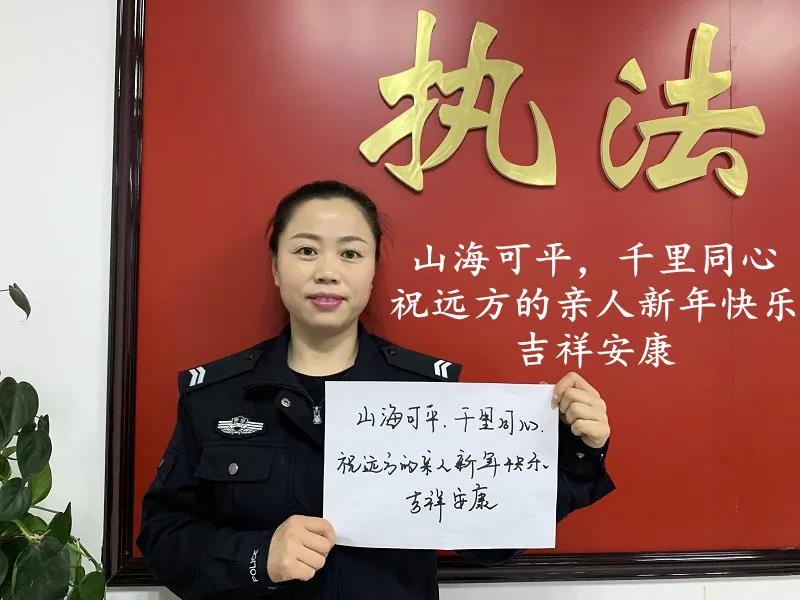 执法
山海可平，千里同心
祝远方的亲人新年快乐
吉祥安康
山海可平.千里同心.
祝远方的亲人新年快乐、
吉祥安康
POLICE